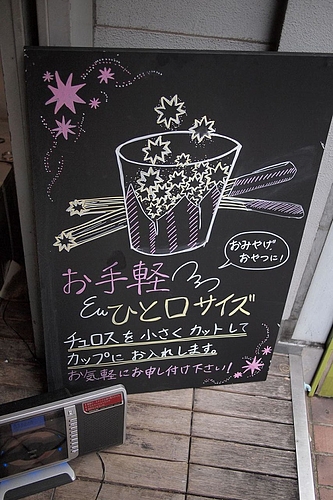 おみやげ
おやつに!
お手軽
ひと口サイズ
チュロスを小さくカットして
カップにお入れします。
お気軽にお申し付け下さい!